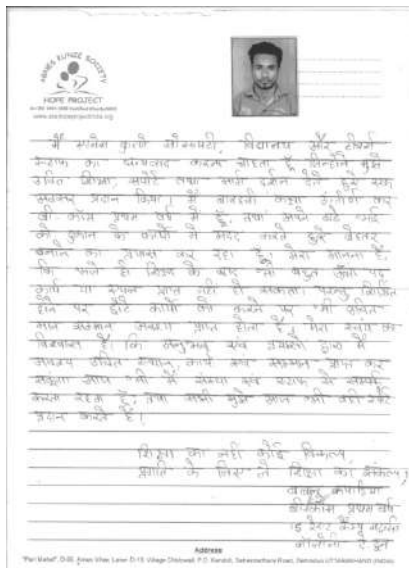 AGNES KUNZE SOCIETY
HOPE PROJECT
मैं एग्नेस कुन्जे सोसायटी, विद्यालय और टीचर्स
स्टाफ का धन्यवाद करना चाहता हूँ जिन्होंने मुझे
उचित शिक्षा, सपोर्ट तथा मार्ग दर्शन देते हुए एक
अवसर प्रदान किया। मैं बारहवीं कक्षा उत्तीर्ण कर
बी. कॉम प्रथम वर्ष में हूँ, तथा अपने छोटे भाई
की दुकान के कार्यों में मदद करते हुए बेहतर
बनाने का प्रयास कर रहा हूँ। मेरा मानना है,
कि भले ही शिक्षा के बाद भी बहुत ऊँचा पद
कार्य या स्थान प्राप्त नहीं हो सकता। परन्तु शिक्षित
होने पर छोटे कार्यों को करने पर भी उचित
मान सम्मान अवश्य प्राप्त होता है। मेरा स्वयं का
विश्वास है। कि अनुभव एवं प्रयासों द्वारा मैं
अवश्य उचित स्थान, कार्य एवं सम्मान प्राप्त कर
सकूंगा। आज भी मैं संस्था एवं स्टाफ से सम्पर्क
करता रहता हूँ, तथा सभी मुझे आज भी वही स्नेह
प्रदान करते हैं।
शिक्षा का नहीं कोई विकल्प
प्रगति के लिए ले शिक्षा का संकल्प।
बीकॉम प्रथम वर्ष
Address